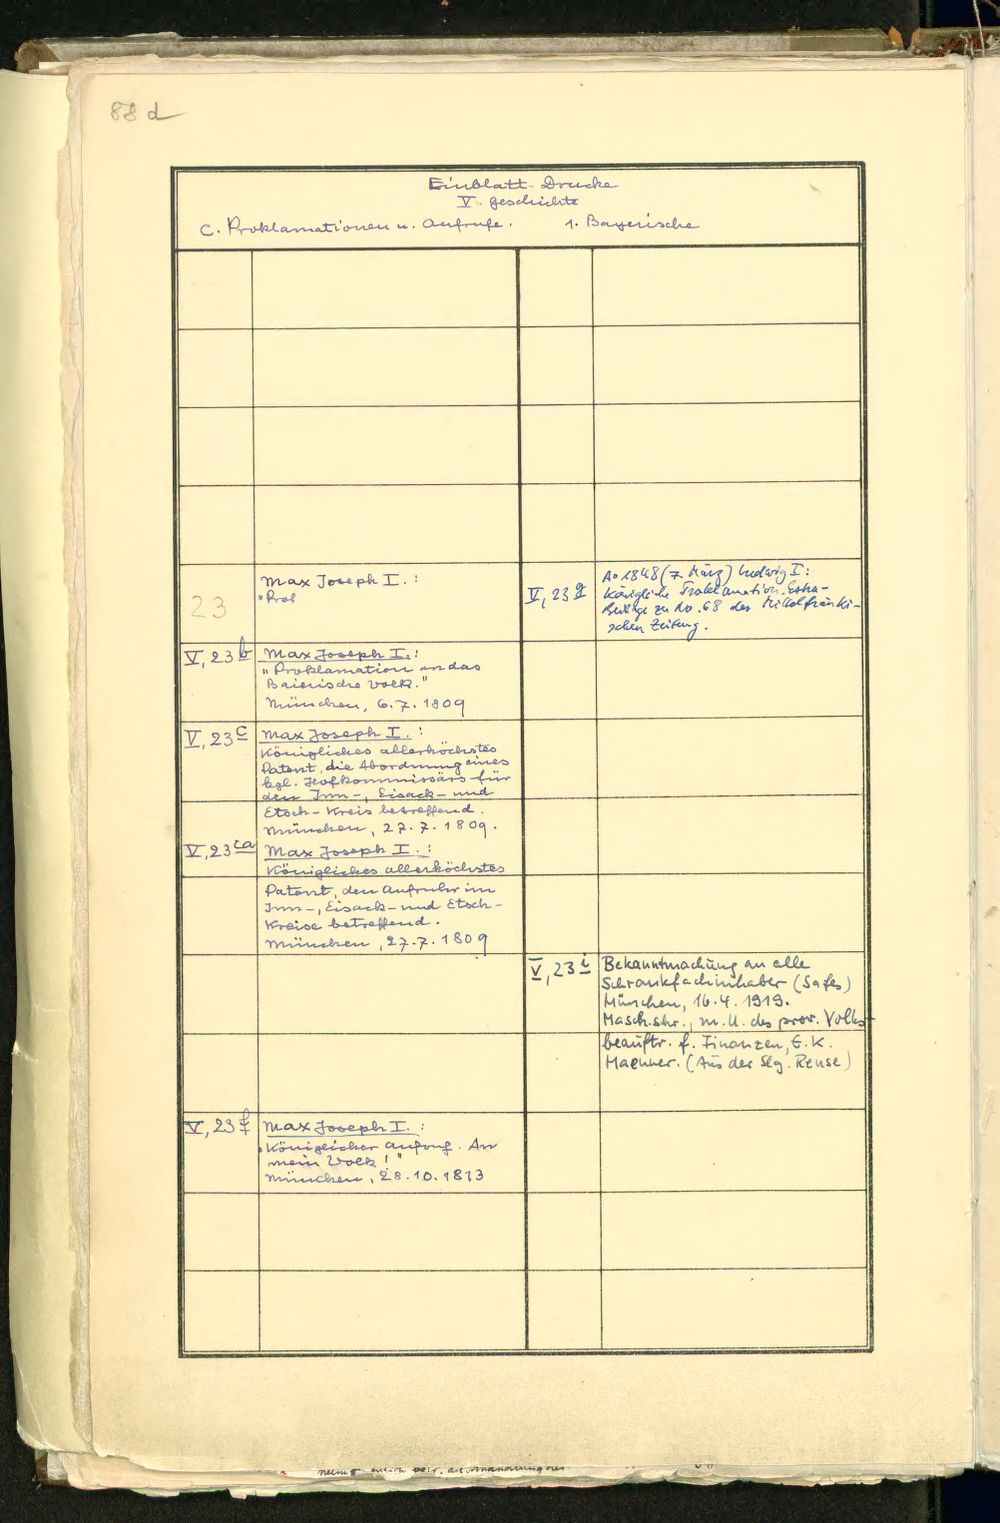 88 d
Einblatt-Drucke
V. Geschichte
C. Proklamationen u. Aufrufe. 1. Bayerische
23
Max Joseph I. :
"Prok
V, 23 b
Max Joseph I. :
"Proklamation an das
Baierische Volk."
München, 6.7.1809
V, 23 c
Max Joseph I. :
Königliches allerhöchstes
Patent, die Abordnung eines
kgl. Hofkommissärs für
den Inn-, Eisack- und
Etsch-Kreis betreffend.
München, 27.7.1809.
V, 23 ca
Max Joseph I. :
Königliches allerhöchstes
Patent, den Aufruhr im
Inn-, Eisack- und Etsch-
Kreise betreffend.
München, 27.7.1809
V, 23 f
Max Joseph I. :
"Königlicher Aufruf. An
mein Volk!"
München, 28.10.1813
V, 23 g
Ao 1848 (7. März) Ludwig I:
Königliche Proklamation. Extra-
Beilage zu No. 68 der Mittelfränki-
schen Zeitung.
V, 23 i
Bekanntmachung an alle
Schrankfachinhaber (Safes)
München, 16.4.1919.
Masch.schr., m. U. des prov. Volks-
beauftr. f. Finanzen, E. K.
Maenner. (Aus der Slg. Rehse)